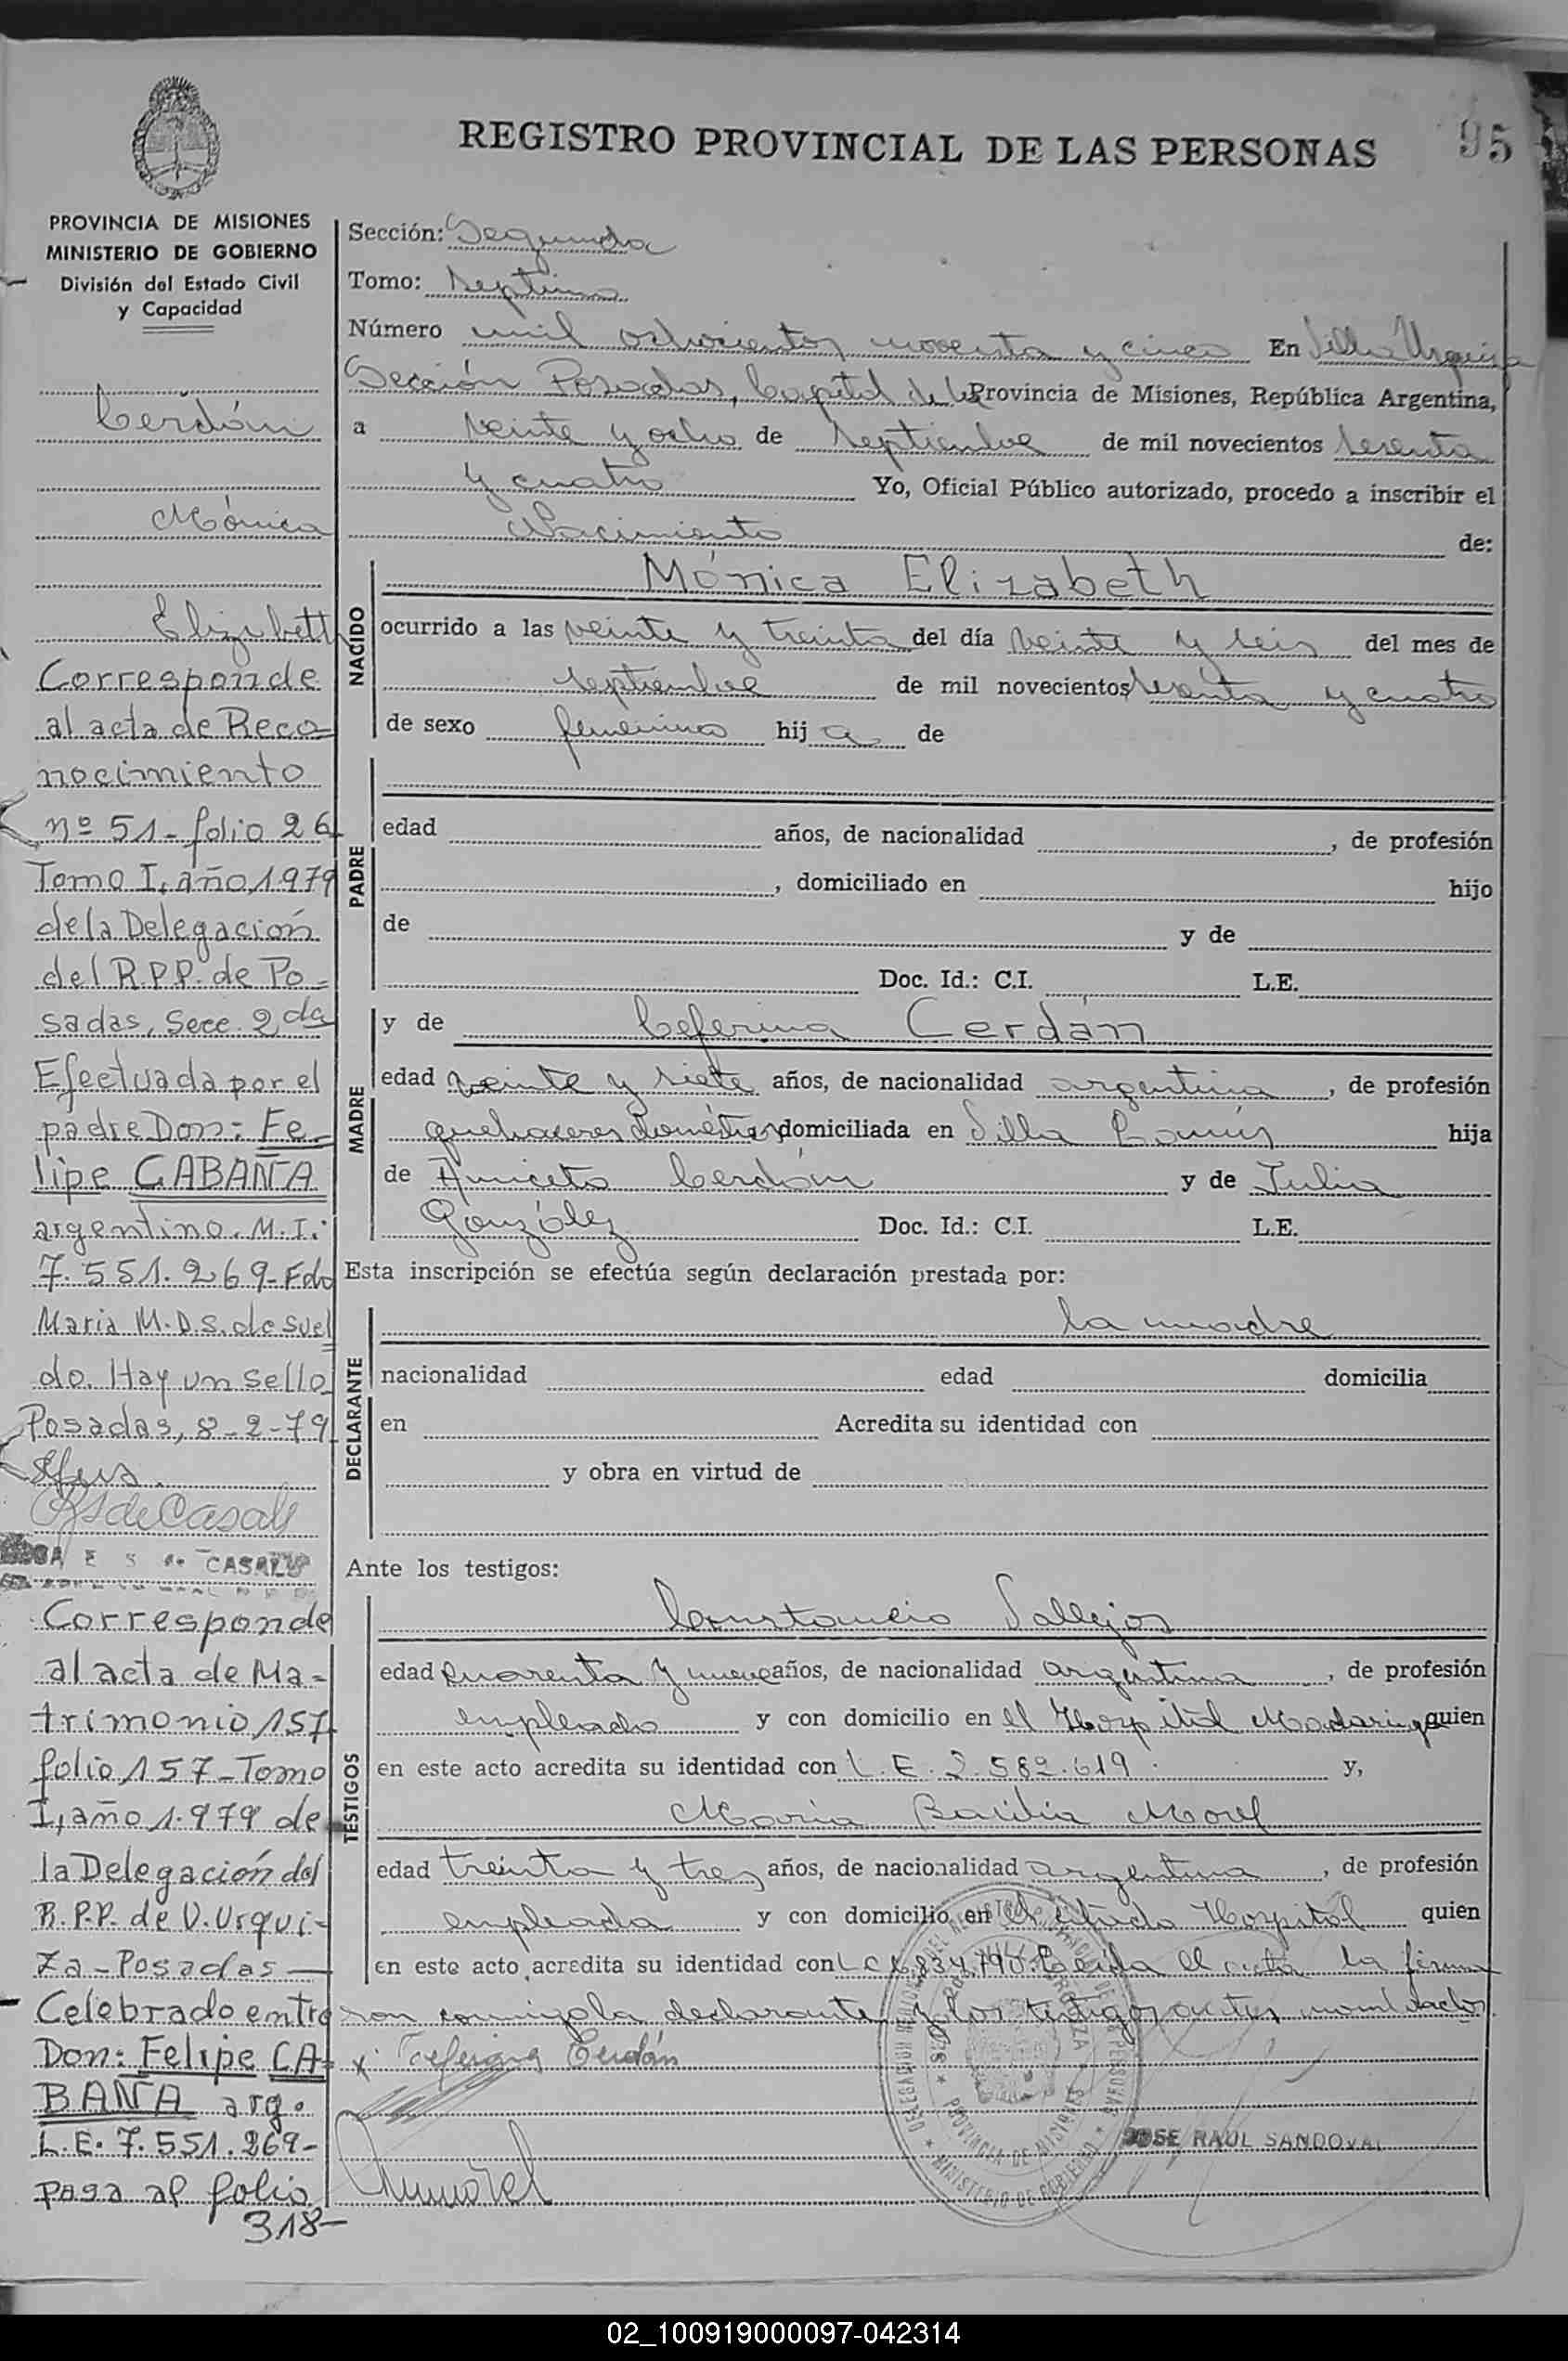 REGISTRO PROVINCIAL DE LAS PERSONAS
95
PROVINCIA DE MISIONES
MINISTERIO DE GOBIERNO
División del Estado Civil
y Capacidad
Cerdán
Mónica
Elizabeth
Corresponde
al acta de Reco
nocimiento
nº 51- folio 26
Tomo I, año 1979
de la Delegación
del R.P.P. de Po=
sadas, Secc. 2da
Efectuada por el
padre Don: Fe
lipe CABAÑA
argentino. M.I.:
7.551.269- Fdo
Maria M.D.S. de Suel
do. Hay un sello
Posadas, 8-2-79
CASALS
Corresponde
al acta de Ma=
trimonio 157
folio 157-Tomo
I, año 1.979 de
la Delegación del
R.P.P. de V. Urqui-
za-Posadas-
Celebrado entre
Don: Felipe CA=
BAÑA arg.
L.E. 7.551.269-
pasa al folio
318-
Sección: Segunda
Tomo: Septimo
Número mil ochocientos noventa y cinco En Villa Urquiza
Sección Posadas, Capital de la Provincia de Misiones, República Argentina,
a veinte y ocho de septiembre de mil novecientos sesenta
y cuatro Yo, Oficial Público autorizado, procedo a inscribir el
Nacimiento de:
NACIDO
Mónica Elizabeth
ocurrido a las veinte y treinta del día veinte y seis del mes de
septiembre de mil novecientos sesenta y cuatro
de sexo femenino hij a de
PADRE
edad años, de nacionalidad , de profesión
, domiciliado en hijo
de y de
Doc. Id.: C.I. L.E.
MADRE
y de Ceferina Cerdán
edad veinte y siete años, de nacionalidad argentina , de profesión
quehaceres domésticos domiciliada en Villa hija
de Aniceto Cerdán y de Julia
González Doc. Id.: C.I. L.E.
Esta inscripción se efectúa según declaración prestada por:
DECLARANTE
la madre
nacionalidad edad domicilia
en Acredita su identidad con
y obra en virtud de
Ante los testigos:
TESTIGOS
Constancio Vallejos
edad cuarenta y nueve años, de nacionalidad argentina , de profesión
empleado y con domicilio en el Hospital Madariaga quien
en este acto acredita su identidad con L.E. 2.582.619 y,
María Basilia Morel
edad treinta y tres años, de nacionalidad argentina , de profesión
empleada y con domicilio en el citado Hospital quien
en este acto acredita su identidad con L.C. Leída el acta la firma
son conmigo la declarante y los testigos antes nombrados.
x Ceferina Cerdán
JOSE RAUL SANDOVAL
02_100919000097-042314